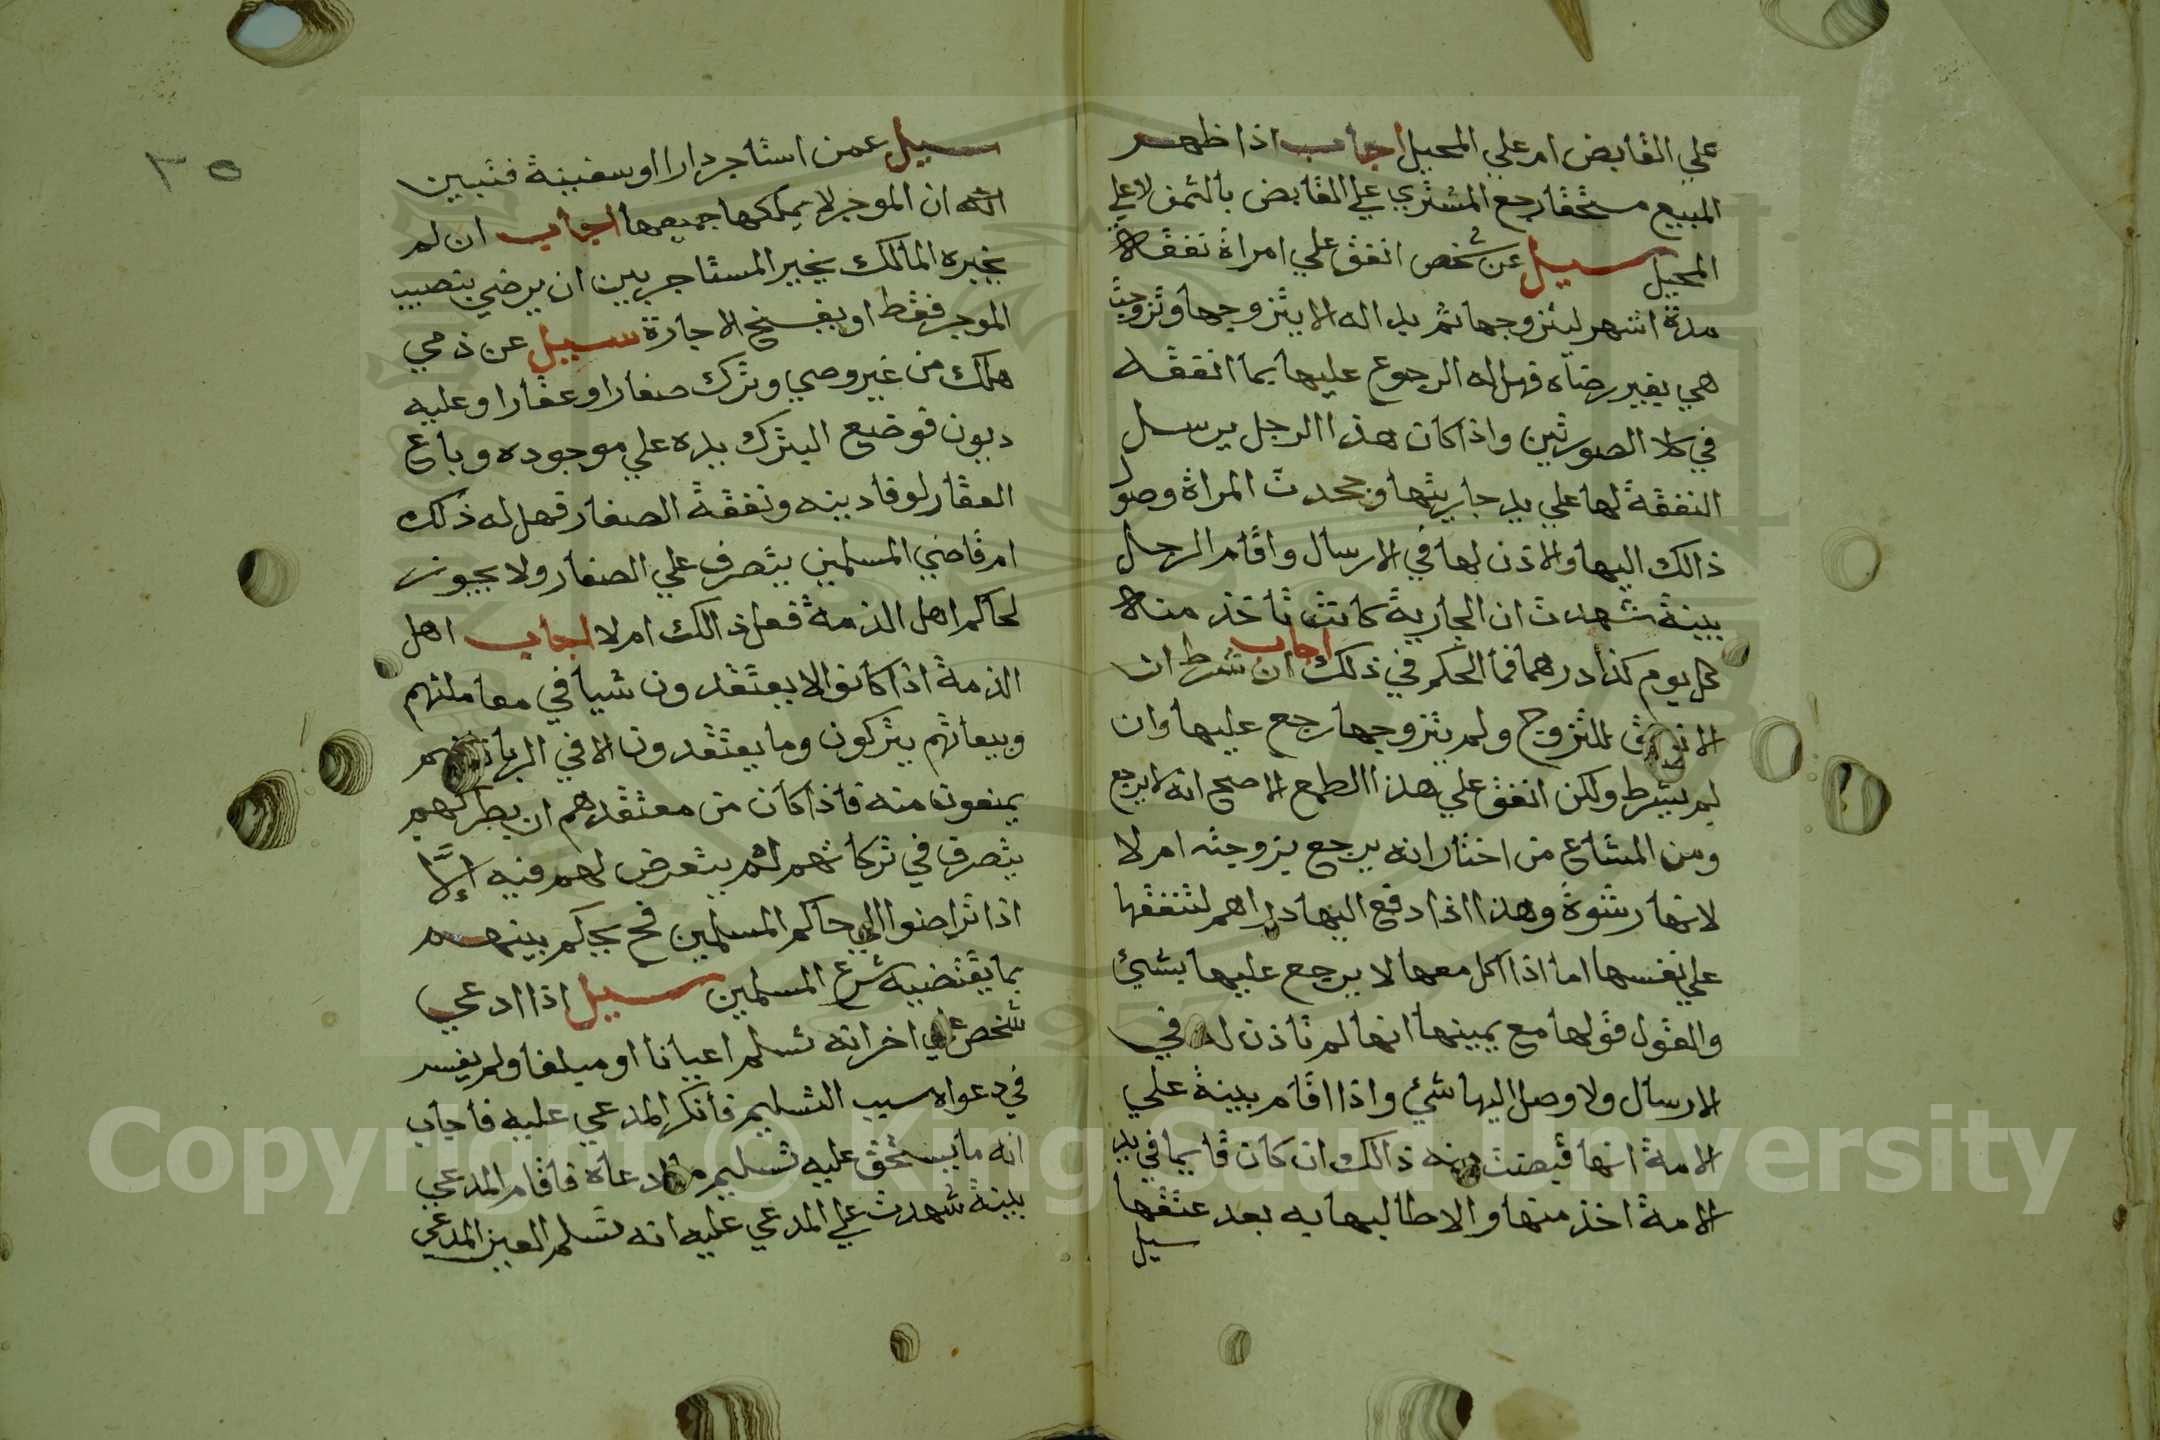 علي القابض ام علي المحيل اجاب اذا ظهر
المبيع مستحقا رجع المشتري علي القابض بالثمن لا علي
المحيل سيل عن شخص انفق علي امراة نفقة
مدة اشهر ليتزوجها ثم بدا له الا يتزوجها وتزوجت
هي بغير رضاه فهل له الرجوع عليها بما انفقه
في كلا الصورتين واذا كان هذا الرجل يرسل
النفقة لها علي يد جاريتها وجحدت المراة وصول
ذالك اليها والاذن لها في الارسال واقام الرجل
بينة شهدت ان الجارية كانت تاخذ منه
كل يوم كذا درهما فما الحكم في ذلك اجاب ان شرط ان
الانفاق للتزوج ولم يتزوجها رجع عليها وان
لم يشرط ولكن انفق علي هذا الطمع الاصح انه لا يرجع
ومن المشايخ من اختار انه يرجع بزوجته ام لا
لانها رشوة وهذا اذا دفع اليها دراهم لتنفقها
علي نفسها اما اذا اكل معها لا يرجع عليها بشئ
والقول قولها مع يمينها انها لم تاذن له في
الارسال ولا وصل اليها شئ واذا اقام بينة علي
الامة انها قبضت منه ذالك ان كان قايما في يد
الامة اخذ منها والا طالبها به بعد عتقها
سيل
٣٥
سيل عمن استاجر دارا او سفينة فتبين
ان الموجر لا يملكها جميعها اجاب ان لم
يجيره المالك يخير المستاجر بين ان يرضي بنصيب
الموجر فقط او يفسخ الاجارة سيل عن ذمي
هلك من غير وصي وترك صغارا وعقارا وعليه
ديون فوضع البترك يده علي موجوده وباع
العقار لوفا دينه ونفقة الصغار فهل له ذلك
ام قاضي المسلمين يتصرف علي الصغار ولا يجوز
لحاكم اهل الذمة فعل ذالك ام لا اجاب اهل
الذمة اذا كانوا لا يعتقدون شيا في معاملتهم
وبيعاتهم يتركون وما يعتقدون الا في الربا فانهم
يمنعون منه فاذا كان من معتقدهم ان بطركهم
يتصرف في تركاتهم لم يتعرض لهم فيه إلّا
اذا تراضوا الي حاكم المسلمين فح يحكم بينهم
بما يقتضيه شرع المسلمين سيل اذا ادعي
شخص علي اخر انه تسلم اعيانا او مبلغا ولم يفسر
في دعواه سبب التسليم فانكر المدعي عليه فاجاب
انه ما يستحق عليه تسليم ما ادعاه فاقام المدعي
بينة شهدت علي المدعي عليه انه تسلم العين المدعي
Copyright © King Saud University
1957